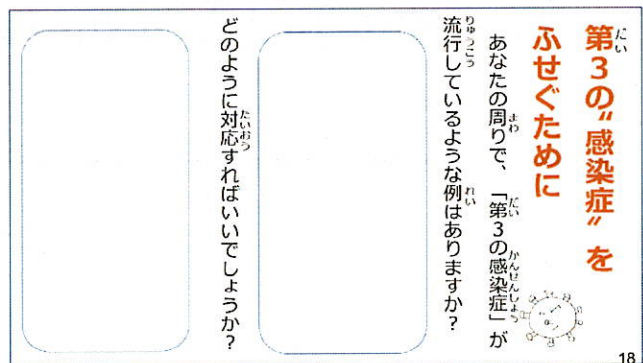 第3の"感染症"を
ふせぐために
あなたの周りで、「第3の感染症」が
流行しているような例はありますか？
どのように対応すればいいでしょうか？
18